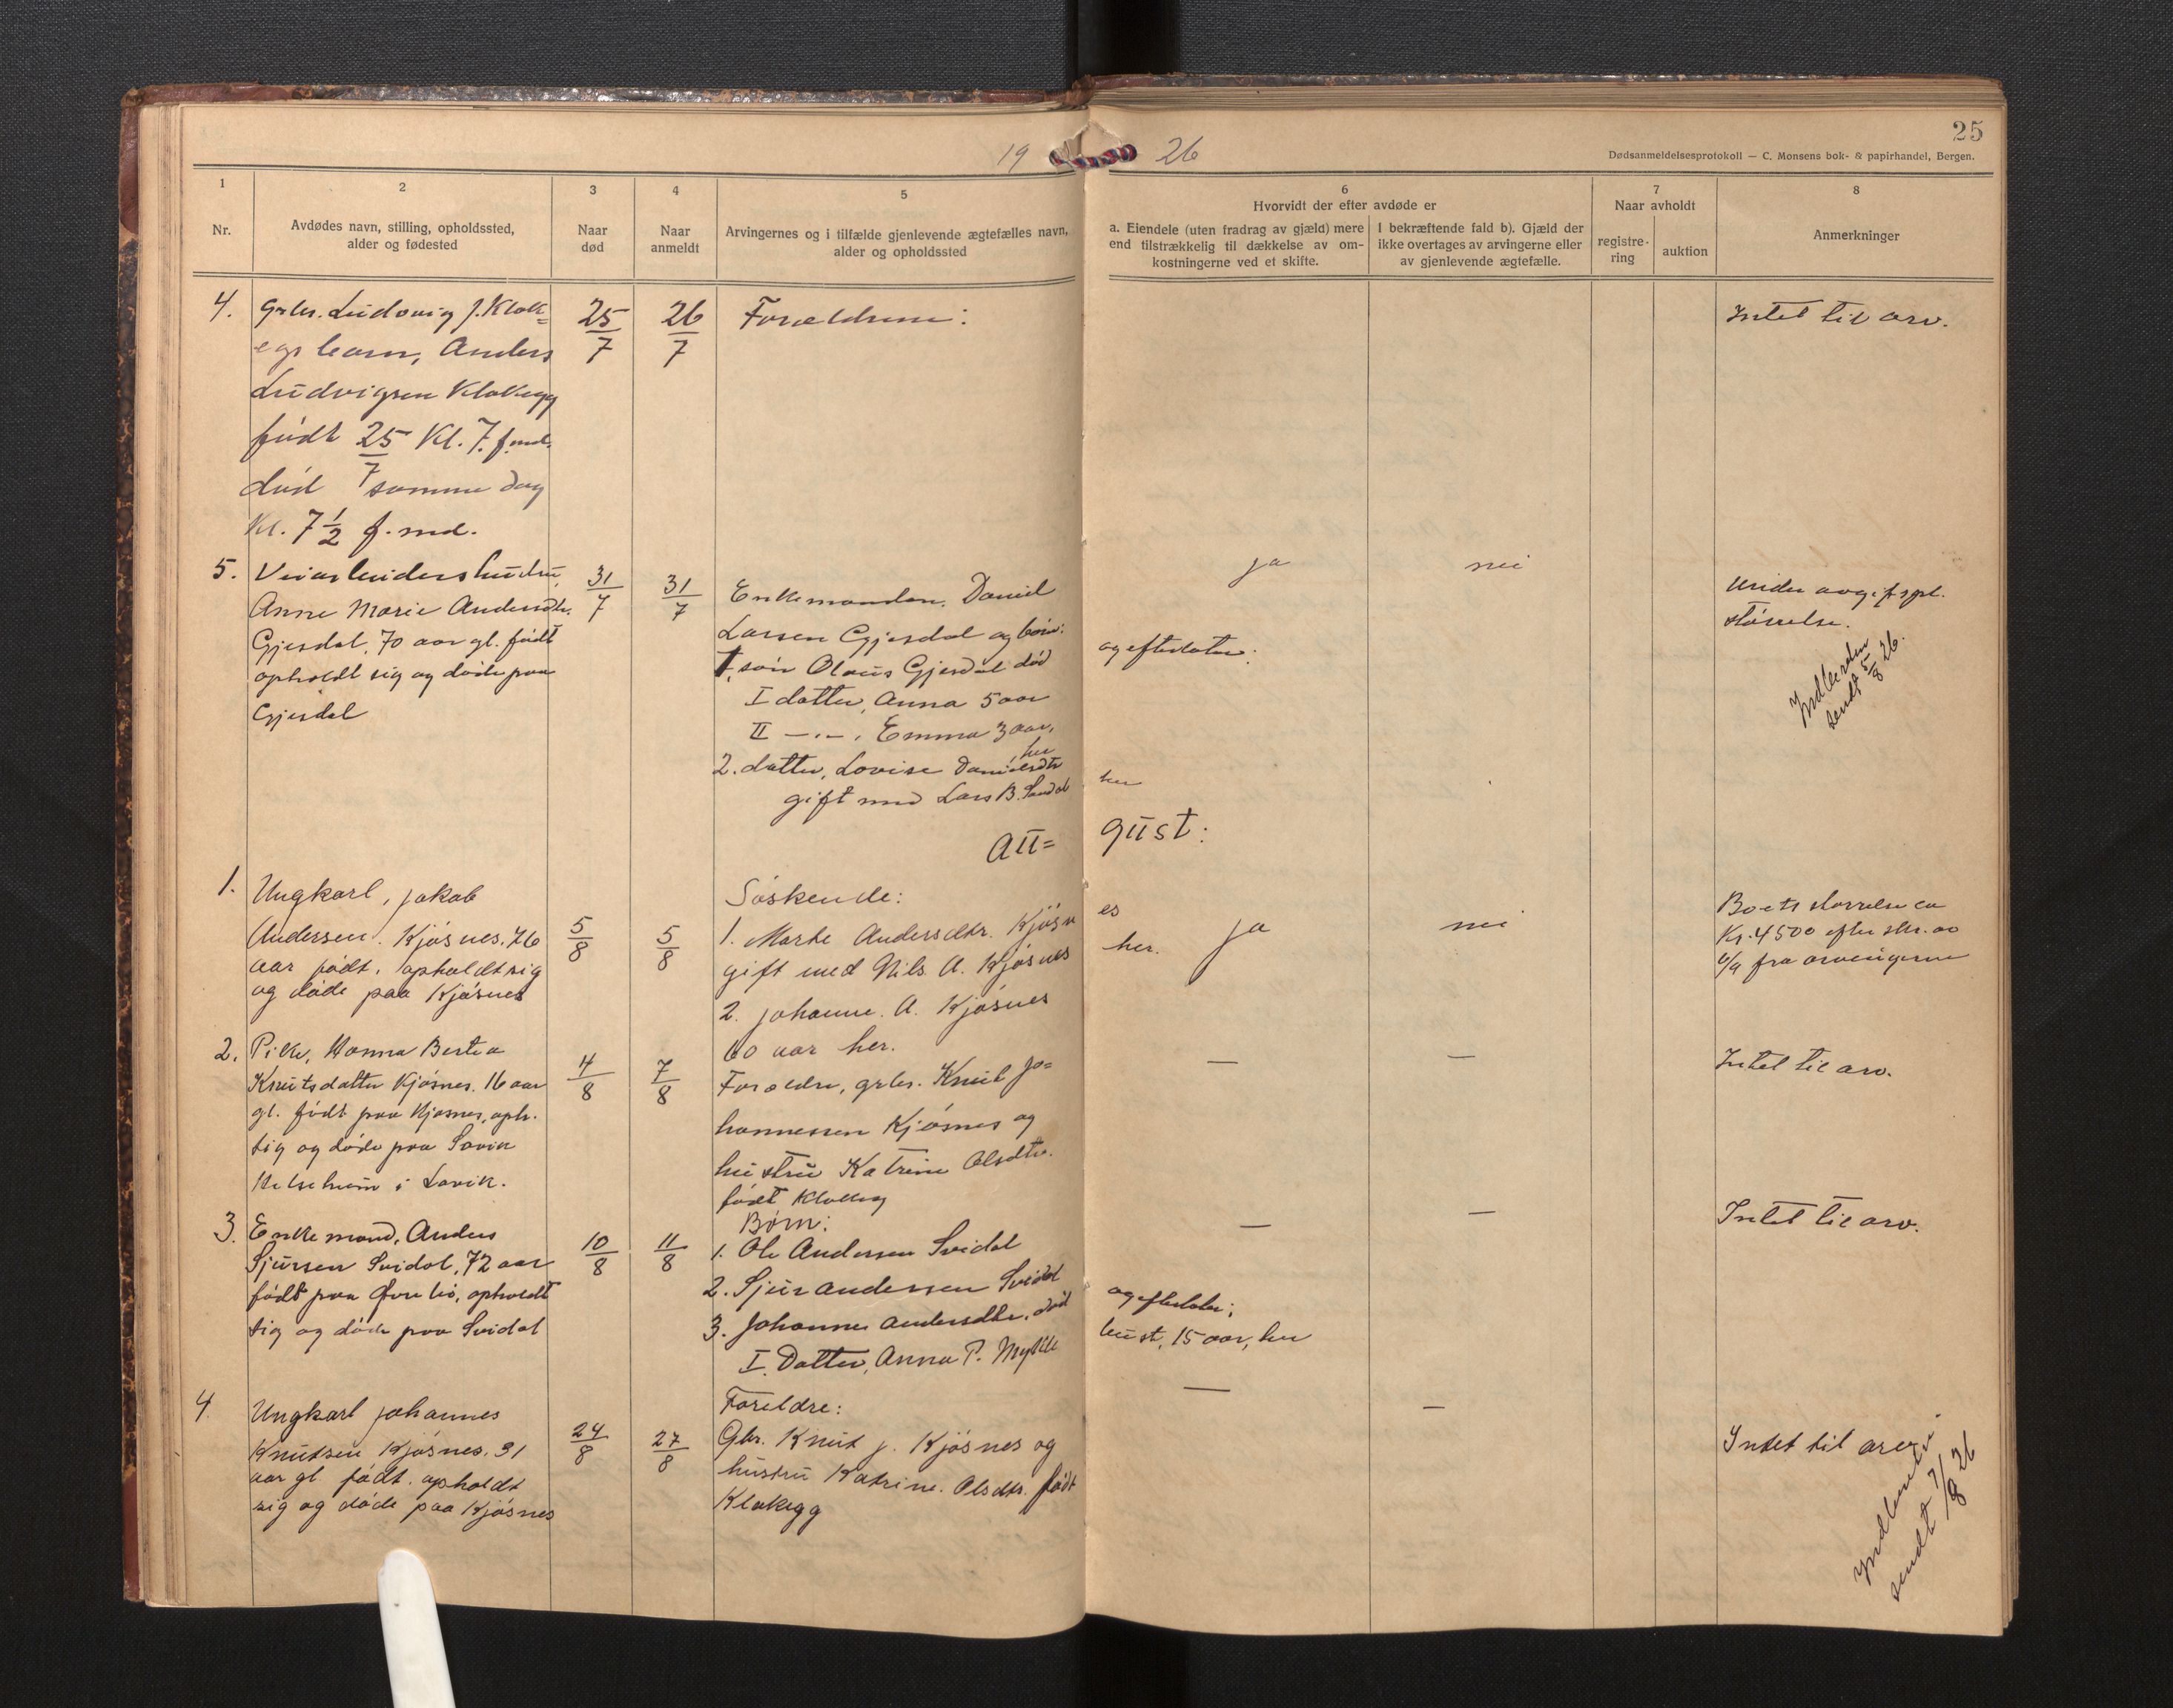 25
19 26
Dødsanmeldelsesprotokoll — C. Monsens bok- & papirhandel, Bergen.
1
Nr.
2
Avdødes navn, stilling, opholdssted,
alder og fødested
3
Naar
død
4
Naar
anmeldt
5
Arvingernes og i tilfælde gjenlevende ægtefælles navn,
alder og opholdssted
6
Hvorvidt der efter avdøde er
a. Eiendele (uten fradrag av gjæld) mere
end tilstrækkelig til dækkelse av om-
kostningerne ved et skifte.
I bekræftende fald b). Gjæld der
ikke overtages av arvingerne eller
av gjenlevende ægtefælle.
7
Naar avholdt
registre-
ring
auktion
8
Anmerkninger
4. Grbr. Ludovig J. Klok=
egs barn, Anders
Ludvigsen Klokegg
født 25/7 Kl. 7. f.md.
död samme dag
Kl. 7 1/2 f. md.
25/7
26/7
Forældrene:
Intet til arv.
5. Veiarbeiders hustru
Anne Marie Andersdtr.
Gjesdal, 70 aar gl. født
opholdt sig og døde paa
Gjesdal
31/7
31/7
Enkemanden, Daniel
Larsen Gjesdal og börn:
1. sön Olaus Gjesdal död
og efterlater:
I datter, Anna 5 aar
II —.— , Emma 3 aar,
her
2. datter, Lovise Danielsdtr
gift med Lars B. Sandal
her
ja
nei
Under avgiftspl.
størrelse.
Indberetn
sendt 5/8 26.
Au= gust:
1. Ungkarl, Jakob
Andersen. Kjøsnes. 76
aar født, opholdt sig
og døde paa Kjøsnes
5/8
5/8
Søskende:
1. Marte Andersdtr. Kjøsn es
gift med Nils A. Kjøsnes her.
2. Johanne. A. Kjøsnes
60 aar her.
ja
nei
Boets størrelse ca
Kr. 4500 efter skr. av
fra arvingerne
2. Pike, Hanna Bertea
Knutsdatter Kjøsnes. 16 aar
gl. født paa Kjøsnes, oph.
sig og døde paa Lavik
Helseheim i Lavik.
4/8
7/8
Forældre, grbr. Knut Jo=
hannessen Kjøsnes og
hustru Katrine Olsdtr.
født Klokeg
—
—
Intet til arv.
3. Enkemand, Anders
Sjursen Svidal, 72 aar
født paa Øvrebø, opholdt
sig og døde paa Svidal
10/8
11/8
Børn:
1. Ole Andersen Svidal
2. Sjur Andersen Svidal
3. Johanne Andersdtr. död
og efterlater;
I. Datter, Anna P. Mykle
bust, 15 aar, her
—
—
Intet til arv.
4 Ungkarl Johannes
Knutsen Kjøsnes. 31
aar gl født. opholdt
sig og døde paa Kjøsnes
24/8
27/8
Foreldre:
Gbr. Knut J. Kjøsnes og
hustru Katrine. Olsdtr. født
Klakegg
—
—
Intet til arv
sendt 26